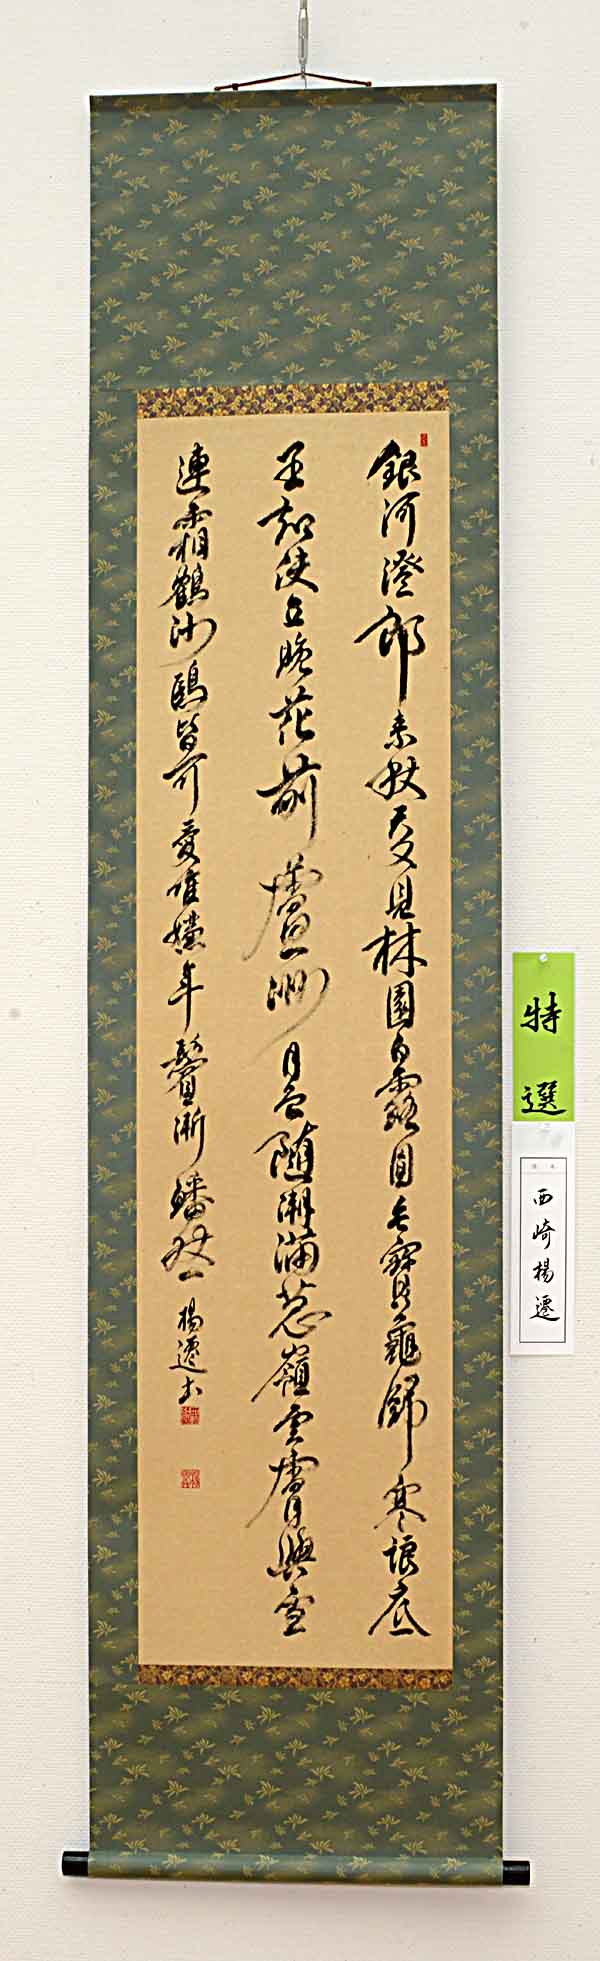 銀河澄朗素秋天又見林園白露圓毛寶龜歸寒浪底
王弘使立晚花前蘆洲月色随潮滿葱嶺雲膚與雪
連霜鶴沙鷗皆可愛唯嫌年鬢漸皤然 楊遷書
特選
西崎楊遷